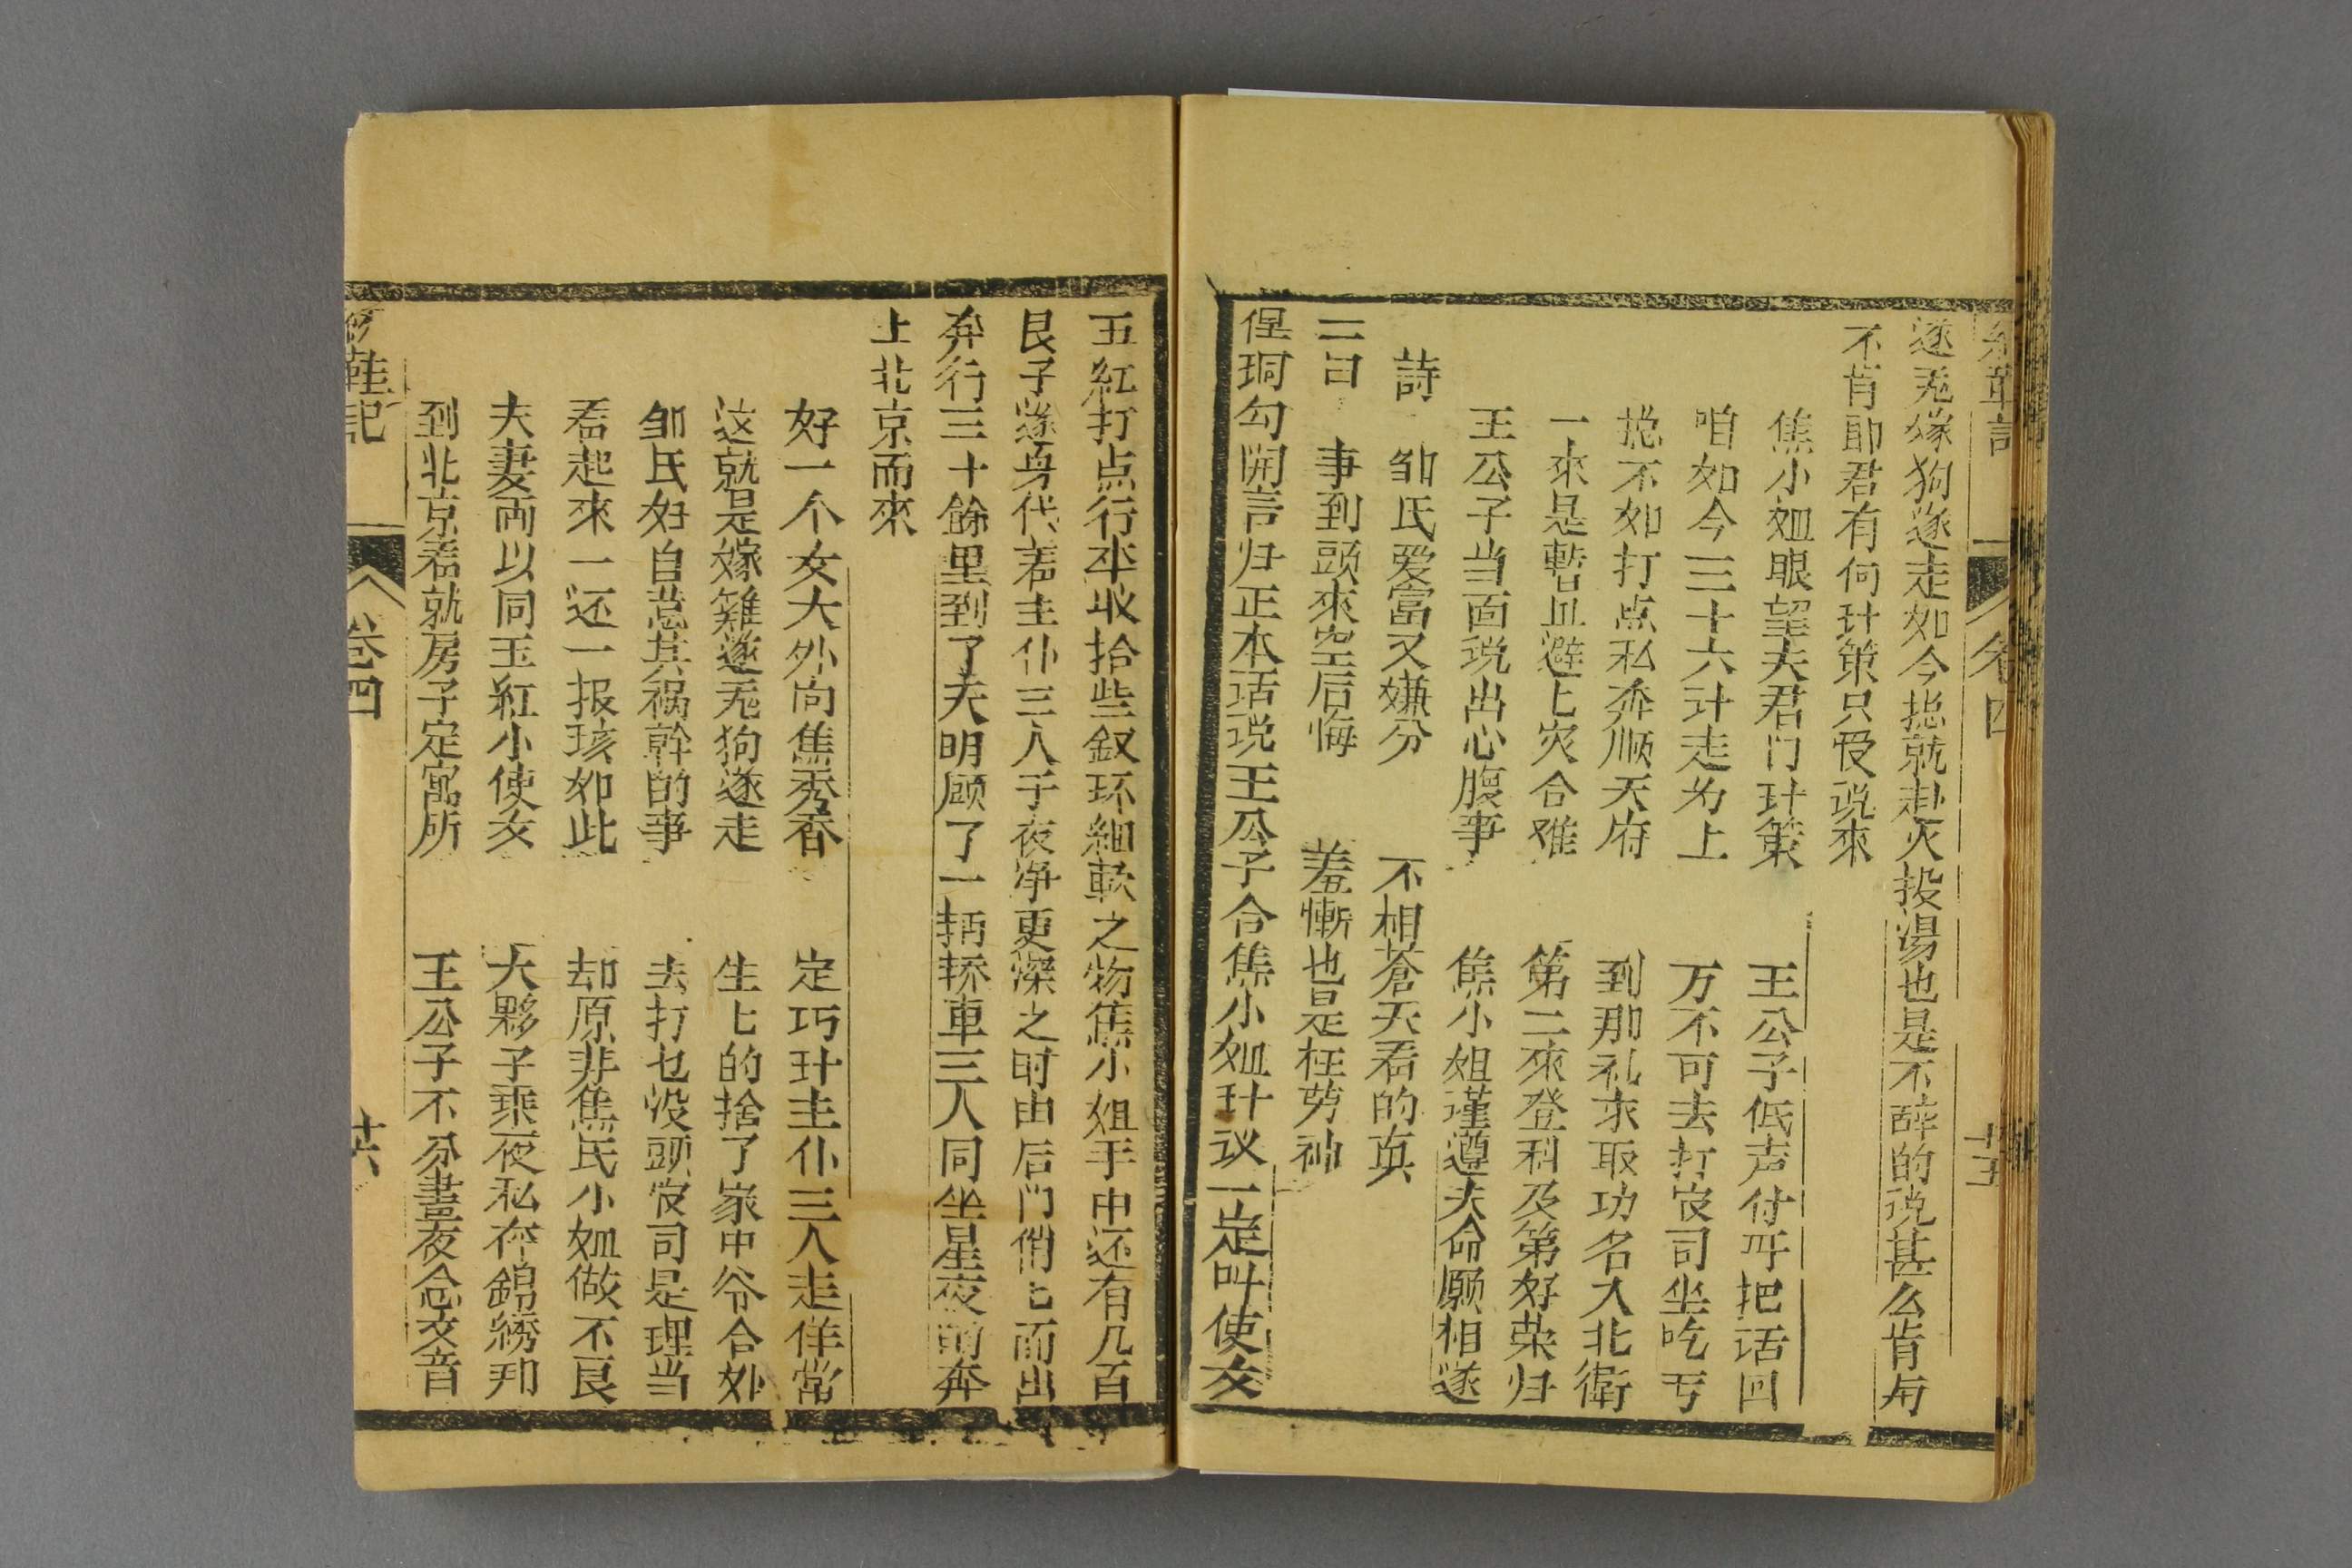 卷四
遂兎嫁狗遂走如今揔就赴火投湯也是不辞的说甚么肯与
不肯郎君有何计策只受说來
焦小姐眼望夫君门计策　王公子低声付耳把话回
咱如今三十六计走为上　万不可去打官司坐吃亏
揔不如打点私奔顺天府　到那礼求取功名入北衛
一來是暫且避上灾合难　第二來登科及第好荣归
王公子当面说出心腹事　焦小姐谨遵夫命願相遂
詩　邹氏爱富又嫌分　不相蒼天看的真
二曰　事到頭來空后悔　羞慚也是枉劳神
俚珂勾開言归正本话说王公子合焦小姐计议一定叫使女
五紅打点行李收拾些釵环細軟之物焦小姐手中还有几百
艮子遂身代着主仆三人于夜净更深之时由后门悄匕而出
奔行三十餘里到了天明顾了一抦轿車三人同坐星夜的奔
上北京而來
好一个女大外向焦秀香　定巧计主仆三人走佯常
这就是嫁雞遂兎狗遂走　生匕的捨了家中爷合娘
邹氏妇自惹其祸幹的事　去打也没頭官司是理当
看起來一还一报孩如此　却原非焦民小姐做不良
夫妻両以同玉紅小使女　大夥子乘夜私奔錦綉邦
到北京看就房子定寓所　王公子不分晝夜念文音
鞋記
卷四
十六